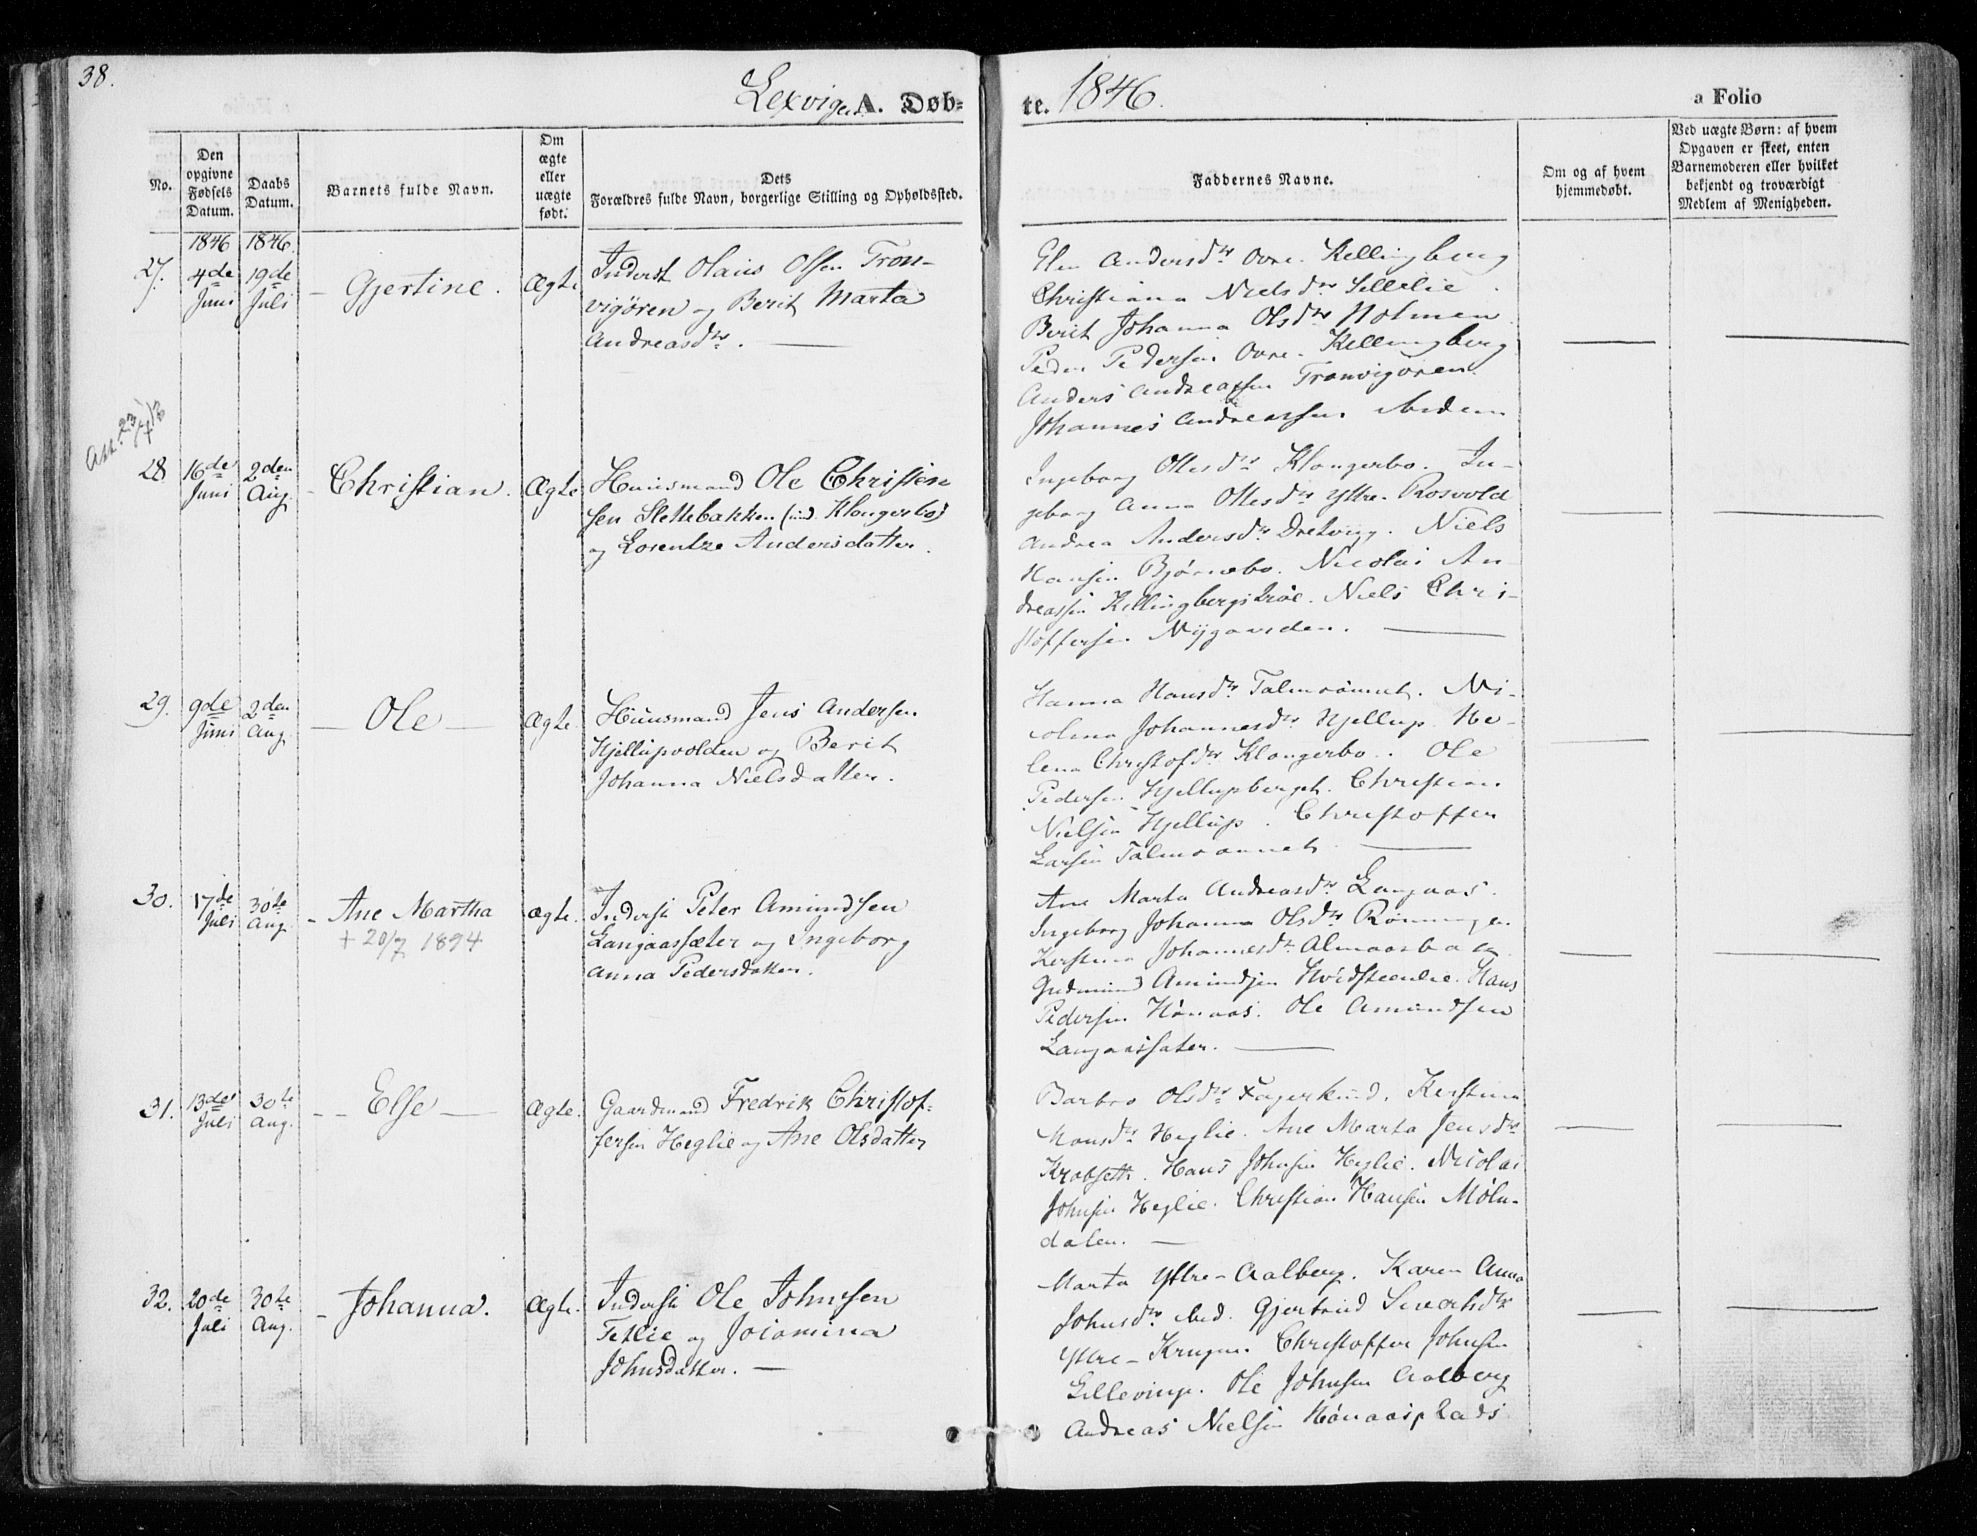 38.
Lexvigen A. Døb=
te. 1846.
a Folio
No.
Den opgivne Fødsels Datum.
Daabs Datum.
Barnets fulde Navn.
Om ægte eller uægte født.
Dets Forældres fulde Navn, borgerlige Stilling og Opholdssted.
Faddernes Navne.
Om og af hvem hjemmedøbt.
Ved uægte Børn: af hvem Opgaven er skeet, enten Barnemoderen eller hvilket bekjendt og troværdigt Medlem af Menigheden.
1846 1846
27. 4de Juni 19de Juli Gjertine. Ægte
Inderst Olaus Olsen Tron-
vigøren og Berit Marta
Andreasdtr.
Elen Andersdtr Ovre-Kellingberg
Christiana Nielsdtr Sellelie
Berit Johanna Olsdtr Holmen
Peder Pedersen Ovre-Kellingberg
Anders Andreassen Tronvigøren.
Johannes Andreassen ibidem
Att. 23/4 13
28 16de Juni 2den Aug. Christian. Ægte
Huusmand Ole Christen
sen Slettebakken (und. Klongerbo)
og Lorentze Andersdatter.
Ingeborg Ottesdtr Klongerbo. In-
geborg Anna Ottesdtr Yttre-Rosvold
Andrea Andersdtr Dretvigg. Niels
Hansen Bjørnebo. Nicolai An-
dreassen Kellingbergstrøe. Niels Chri-
stoffersen Nygaarden.
29. 9de Juni 2den Aug. Ole Ægte
Huusmand Jens Andersen
Hjellupvolden og Berit
Johanna Nielsdatter.
Hanna Hansdtr Talmoünnet. Ni-
colina Johannesdtr Hjellup. He-
lena Christofdtr Klongerbo. Ole
Pedersen Hjellupberget. Christian
Nielsen Hjellup. Christoffer
Larsen
30. 17de Juli 30te Aug. Ane Martha Ægte.
+ 20/7 1894
Inderst Peter Amundsen
Langaassæter og Ingeborg
Anna Pedersdatter.
Ane Marta Andreasdtr Langaas.
Ingeborg Johanna Olsdtr Rønningen
Kerstina Johannesdtr Almaasbakken
Gudmund Amundsen Hvidsteenlie. Hans
Pedersen Hønaas. Ole Amundsen
Langaassæter.
31. 13de Juli 30te Aug. Else Ægte.
Gaardmand Fredrik Christof-
fersen Heglie og Ane Olsdatter
Barbro Olsdtr Fagerlund. Kerstina
Hansdtr Heglie. Ane Marta Jensdtr
Krobseth. Hans Johnsen Heglie. Nicolai
Johnsen Heglie. Christian Hansen Møln-
dalen.
32. 20de Juli 30te Aug. Johanna. Ægte.
Inderst Ole Johnsen
Tetlie og Joiamina
Johnsdatter.
Marta Yttre-Aalberg. Karen Anna
Johnsdtr ibid. Gjertrud Sivertsdtr
Yttre-Krugen. Christoffer Johnsen
Lillevinge. Ole Johnsen Aalberg
Andreas Nielsen Hønaasplads